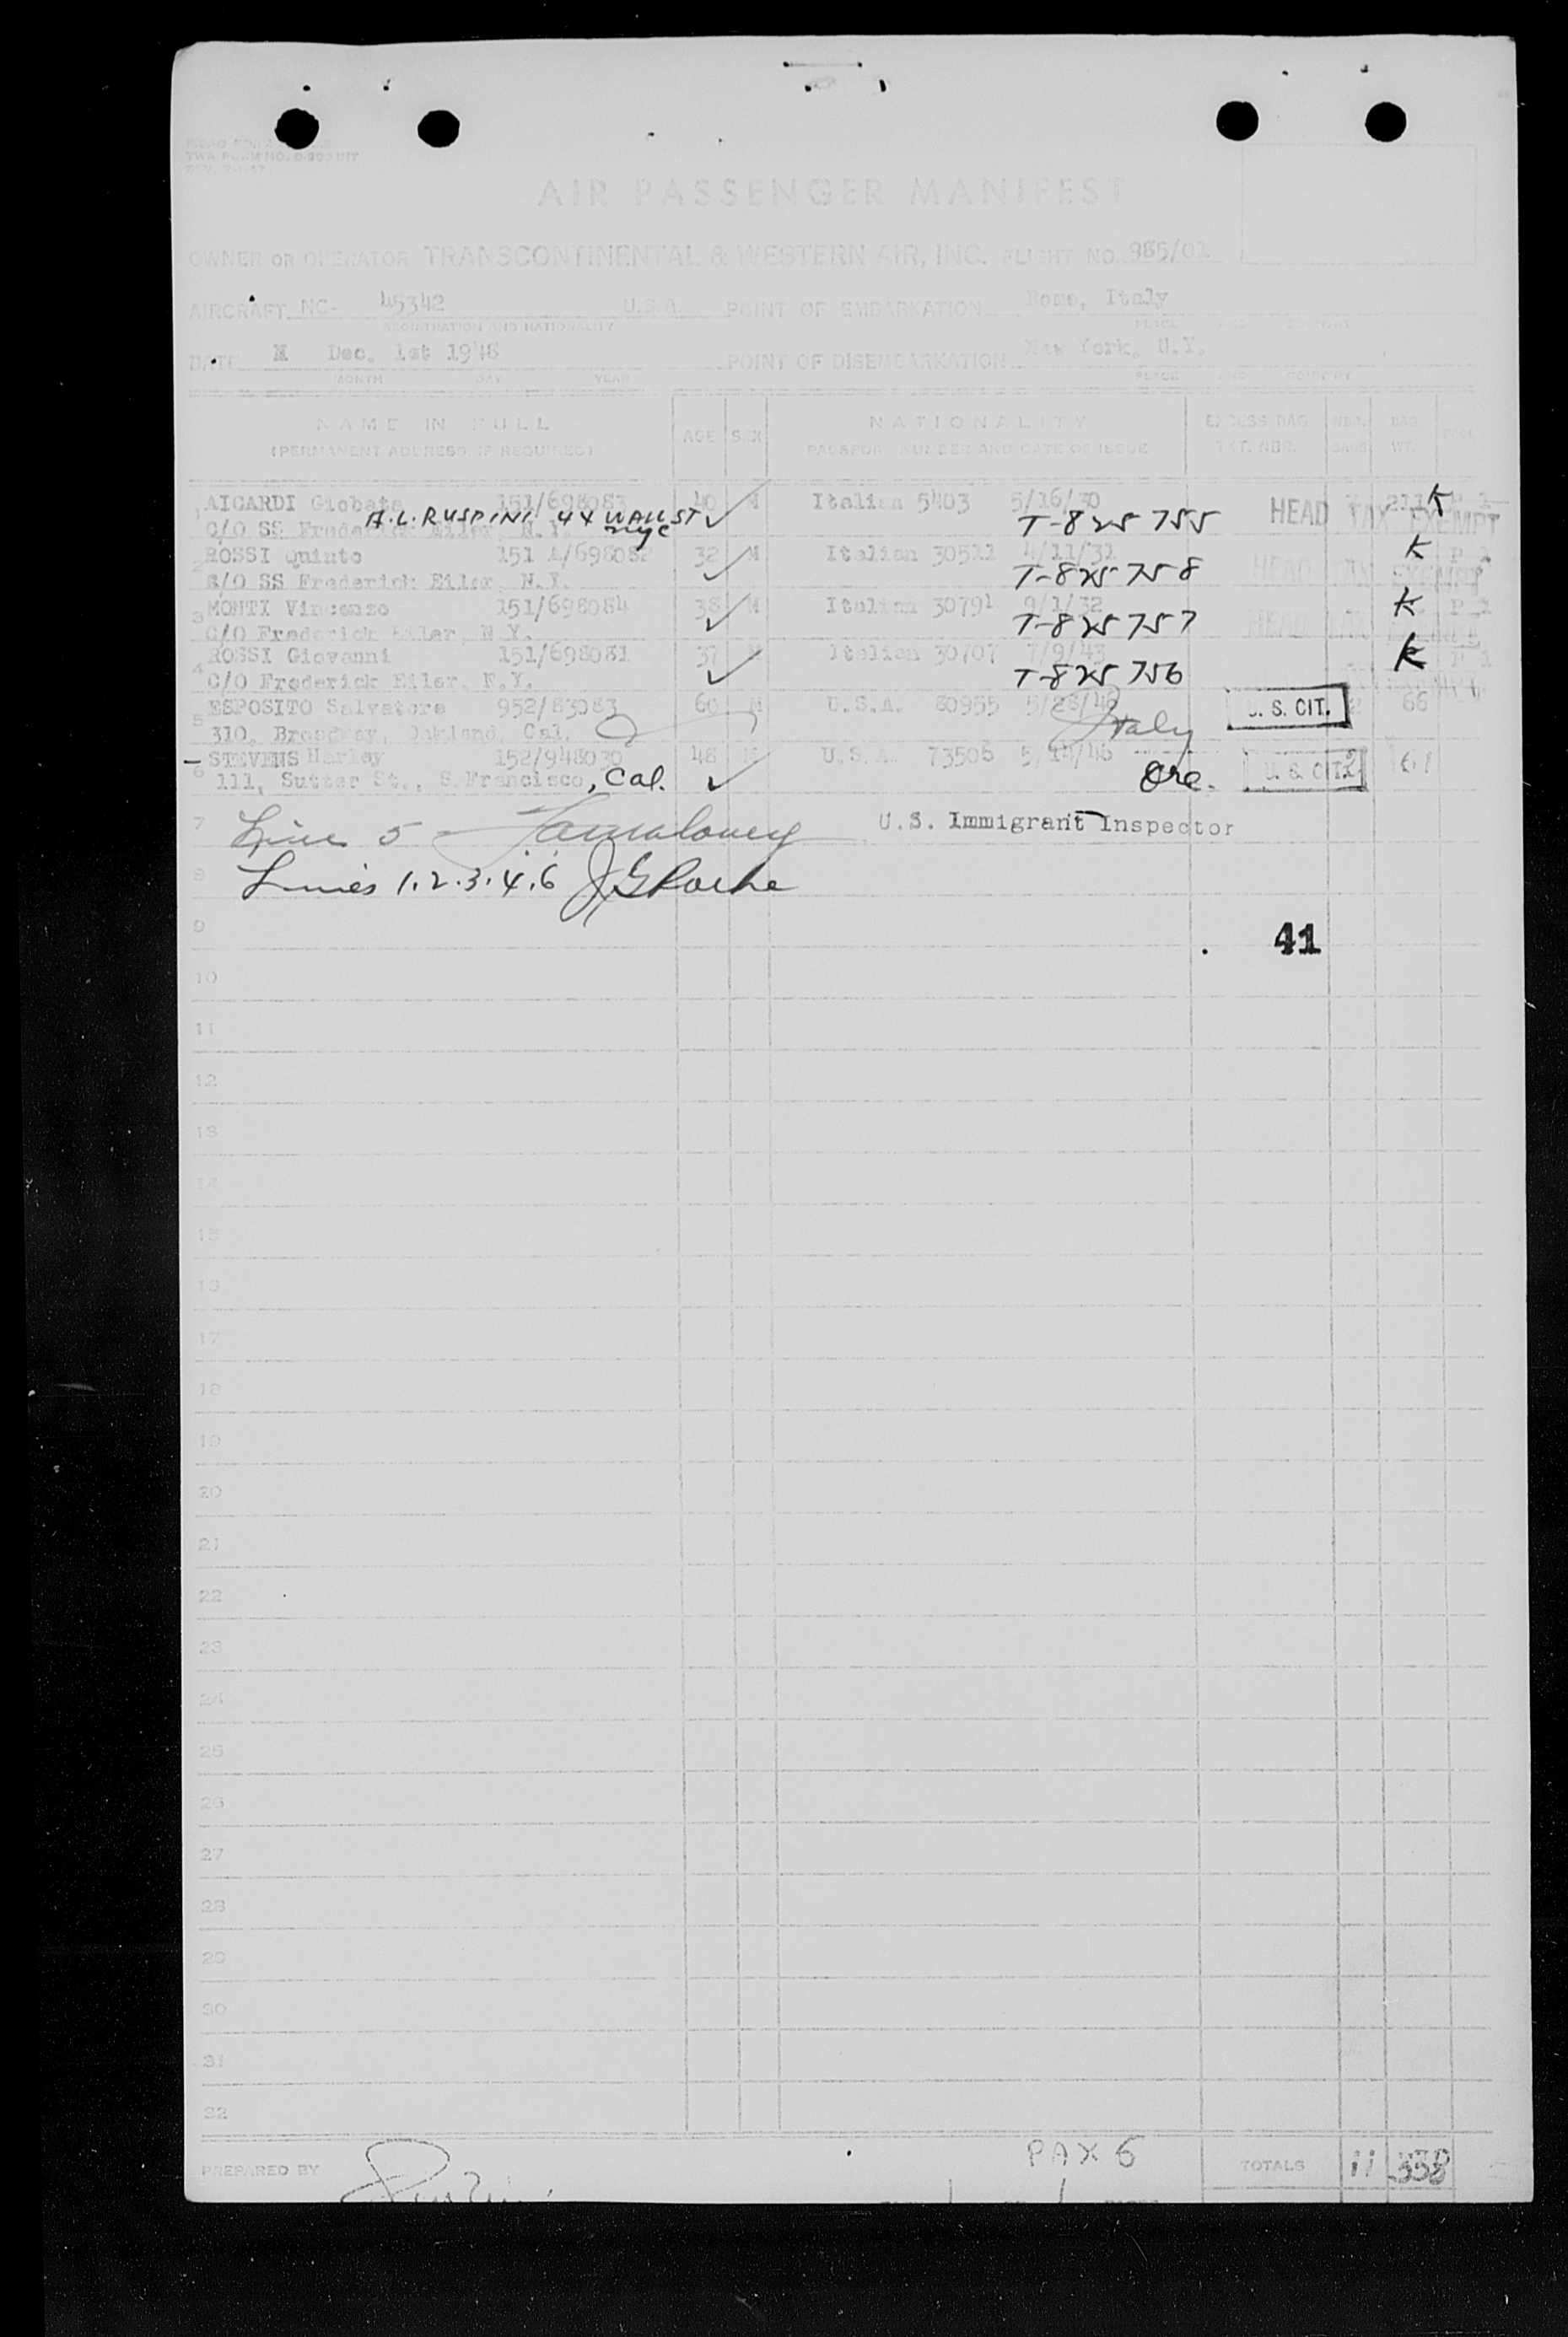 TWA FORM NO.
AIR PASSENGER MANIFEST
OWNER OR OPERATOR TRANSCONTINENTAL & WESTERN AIR, INC. FLIGHT NO. 985/01
AIRCRAFT NC- 45342 U.S.A. POINT OF EMBARKATION Rome, Italy
REGISTRATION AND NATIONALITY PLACE AND COUNTRY
DATE M Dec. 1st 1946 POINT OF DISEMBARKATION New York, N.Y.
MONTH DAY YEAR PLACE AND COUNTRY
NAME IN FULL AGE SEX NATIONALITY EXCESS BAG
(PERMANENT ADDRESS IF REQUIRED) PASSPORT NUMBER AND DATE OF ISSUE TKT. NBR. WT.
1 AICARDI Giobata 151/698083 40 M Italian 5403 5/16/30 HEAD TAX EXEMPT 211 K P 1
C/O SS Frederick Eiler, N.Y. A.L. RUSPINI 44 WALL ST nyc T-825755
2 ROSSI Quinto 151 A/698082 32 M Italian 30511 4/11/31 HEAD TAX EXEMPT K P 1
C/O SS Frederick Eiler, N.Y. T-825758
3 MONTI Vincenzo 151/698084 38 M Italian 30791 9/1/32 HEAD TAX K P 1
C/O Frederick Eiler, N.Y. T-825757
4 ROSSI Giovanni 151/698081 37 M Italian 30707 7/9/43 K P 1
C/O Frederick Eiler, N.Y. T-825756
5 ESPOSITO Salvatore 952/83083 60 M U.S.A. 80955 5/28/46 U.S. CIT. 2 66
310, Broadway, Oakland, Cal. Italy
6 STEVENS Harley 152/948030 48 M U.S.A. 73506 5/14/46 U.S. CIT. 2 61
111, Sutter St., S.Francisco, Cal. Ore.
7 Line 5 U.S. Immigrant Inspector
8 Lines 1.2.3.4.6
9 41
10
11
12
13
14
15
16
17
18
19
20
21
22
23
24
25
26
27
28
29
30
31
32
PAX 6
PREPARED BY TOTALS 11 338